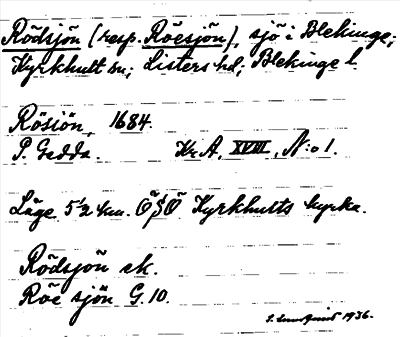 Rödsjön (resp. Röesjön), sjö i Blekinge;
Kyrkhult sn; Listers hd; Blekinge l.
Rösiön, 1684.
P. Gedda. Kr.A, XVIII, N:o 1.
Läge 5 1/2 km. ÖSÖ Kyrkhults kyrka.
Rödsjön ek.
Röe sjön G. 10.
1936.